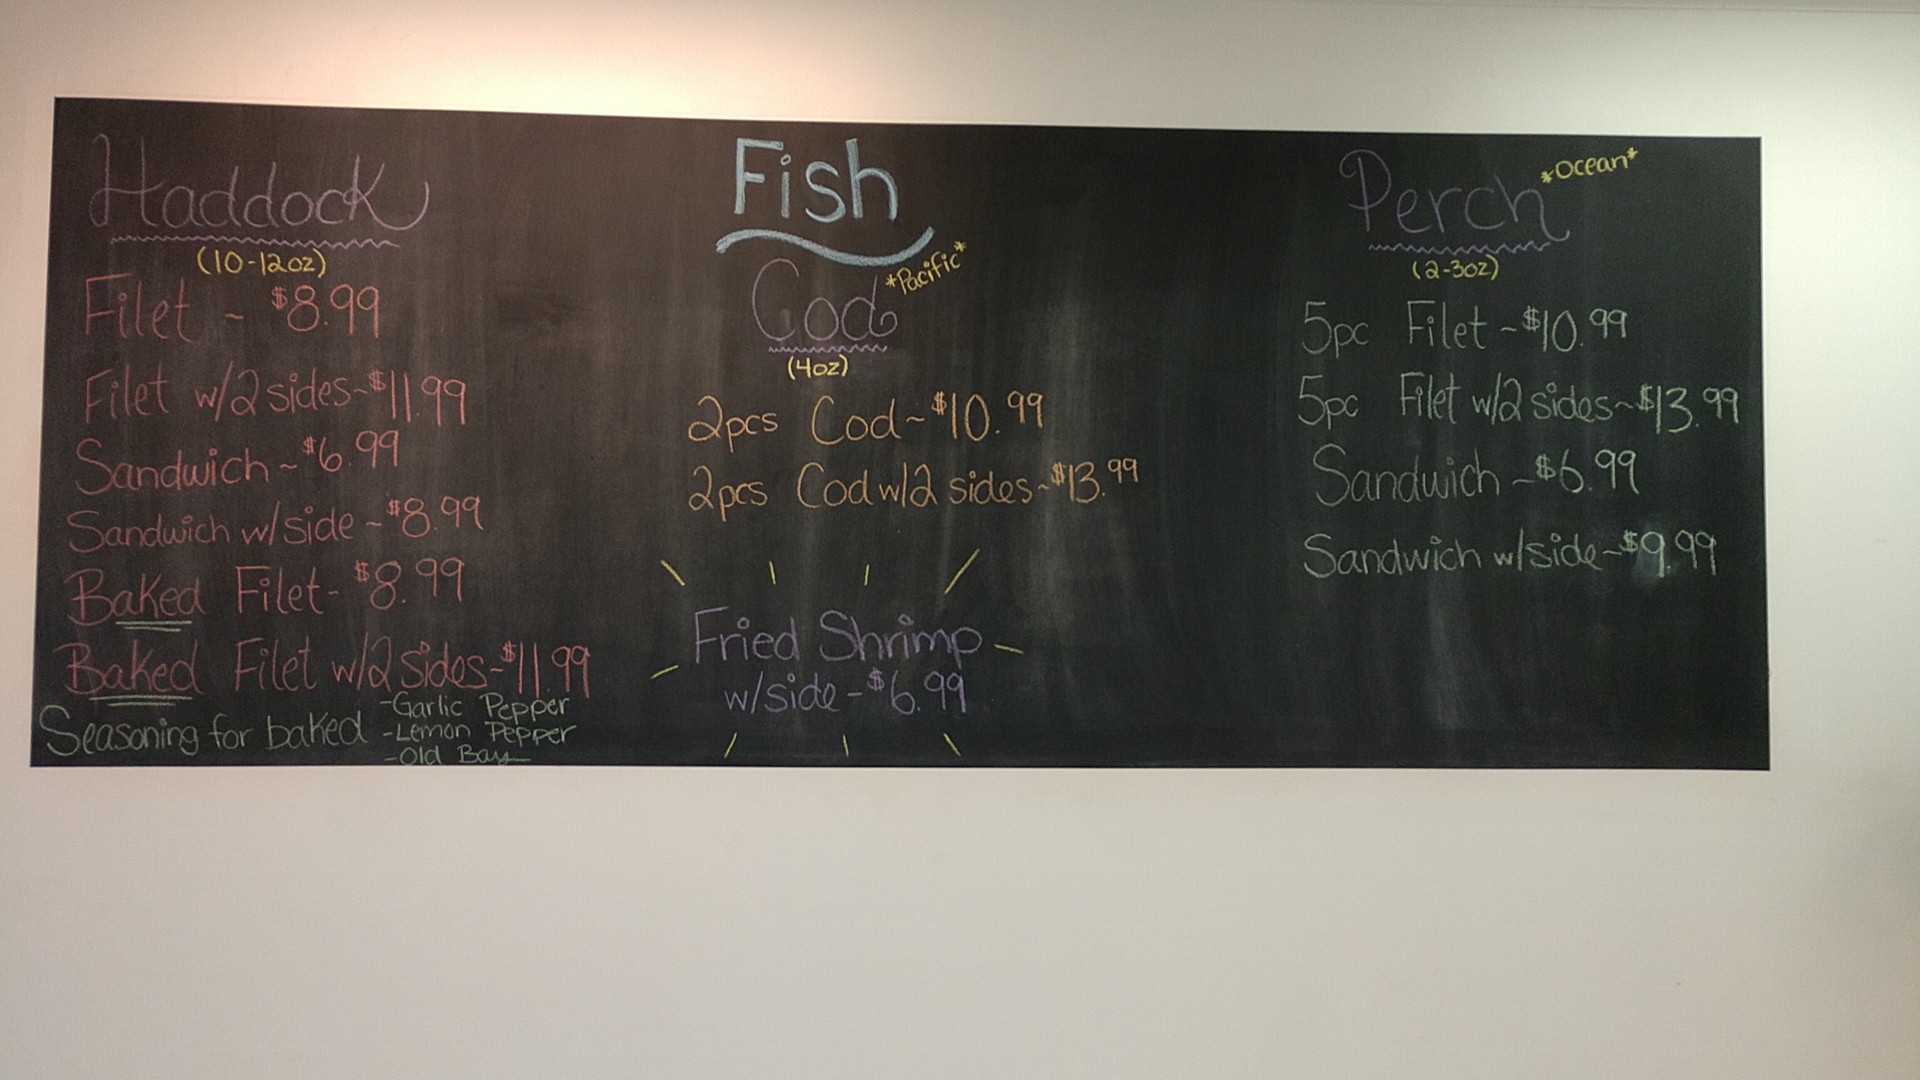 Haddock
(10-12oz)
Filet ~ $8.99
Filet w/2 sides~$11.99
Sandwich ~ $6.99
Sandwich w/side ~ $8.99
Baked Filet- $8.99
Baked Filet w/2 sides-$11.99
Seasoning for baked
-Garlic Pepper
-Lemon Pepper
-Old Bay
Fish
Cod *Pacific*
(4oz)
2pcs Cod~$10.99
2pcs Cod w/2 sides~$13.99
Fried Shrimp
w/side-$6.99
Perch *Ocean*
(2-3oz)
5pc Filet ~$10.99
5pc Filet w/2 sides~$13.99
Sandwich ~$6.99
Sandwich w/side~$9.99